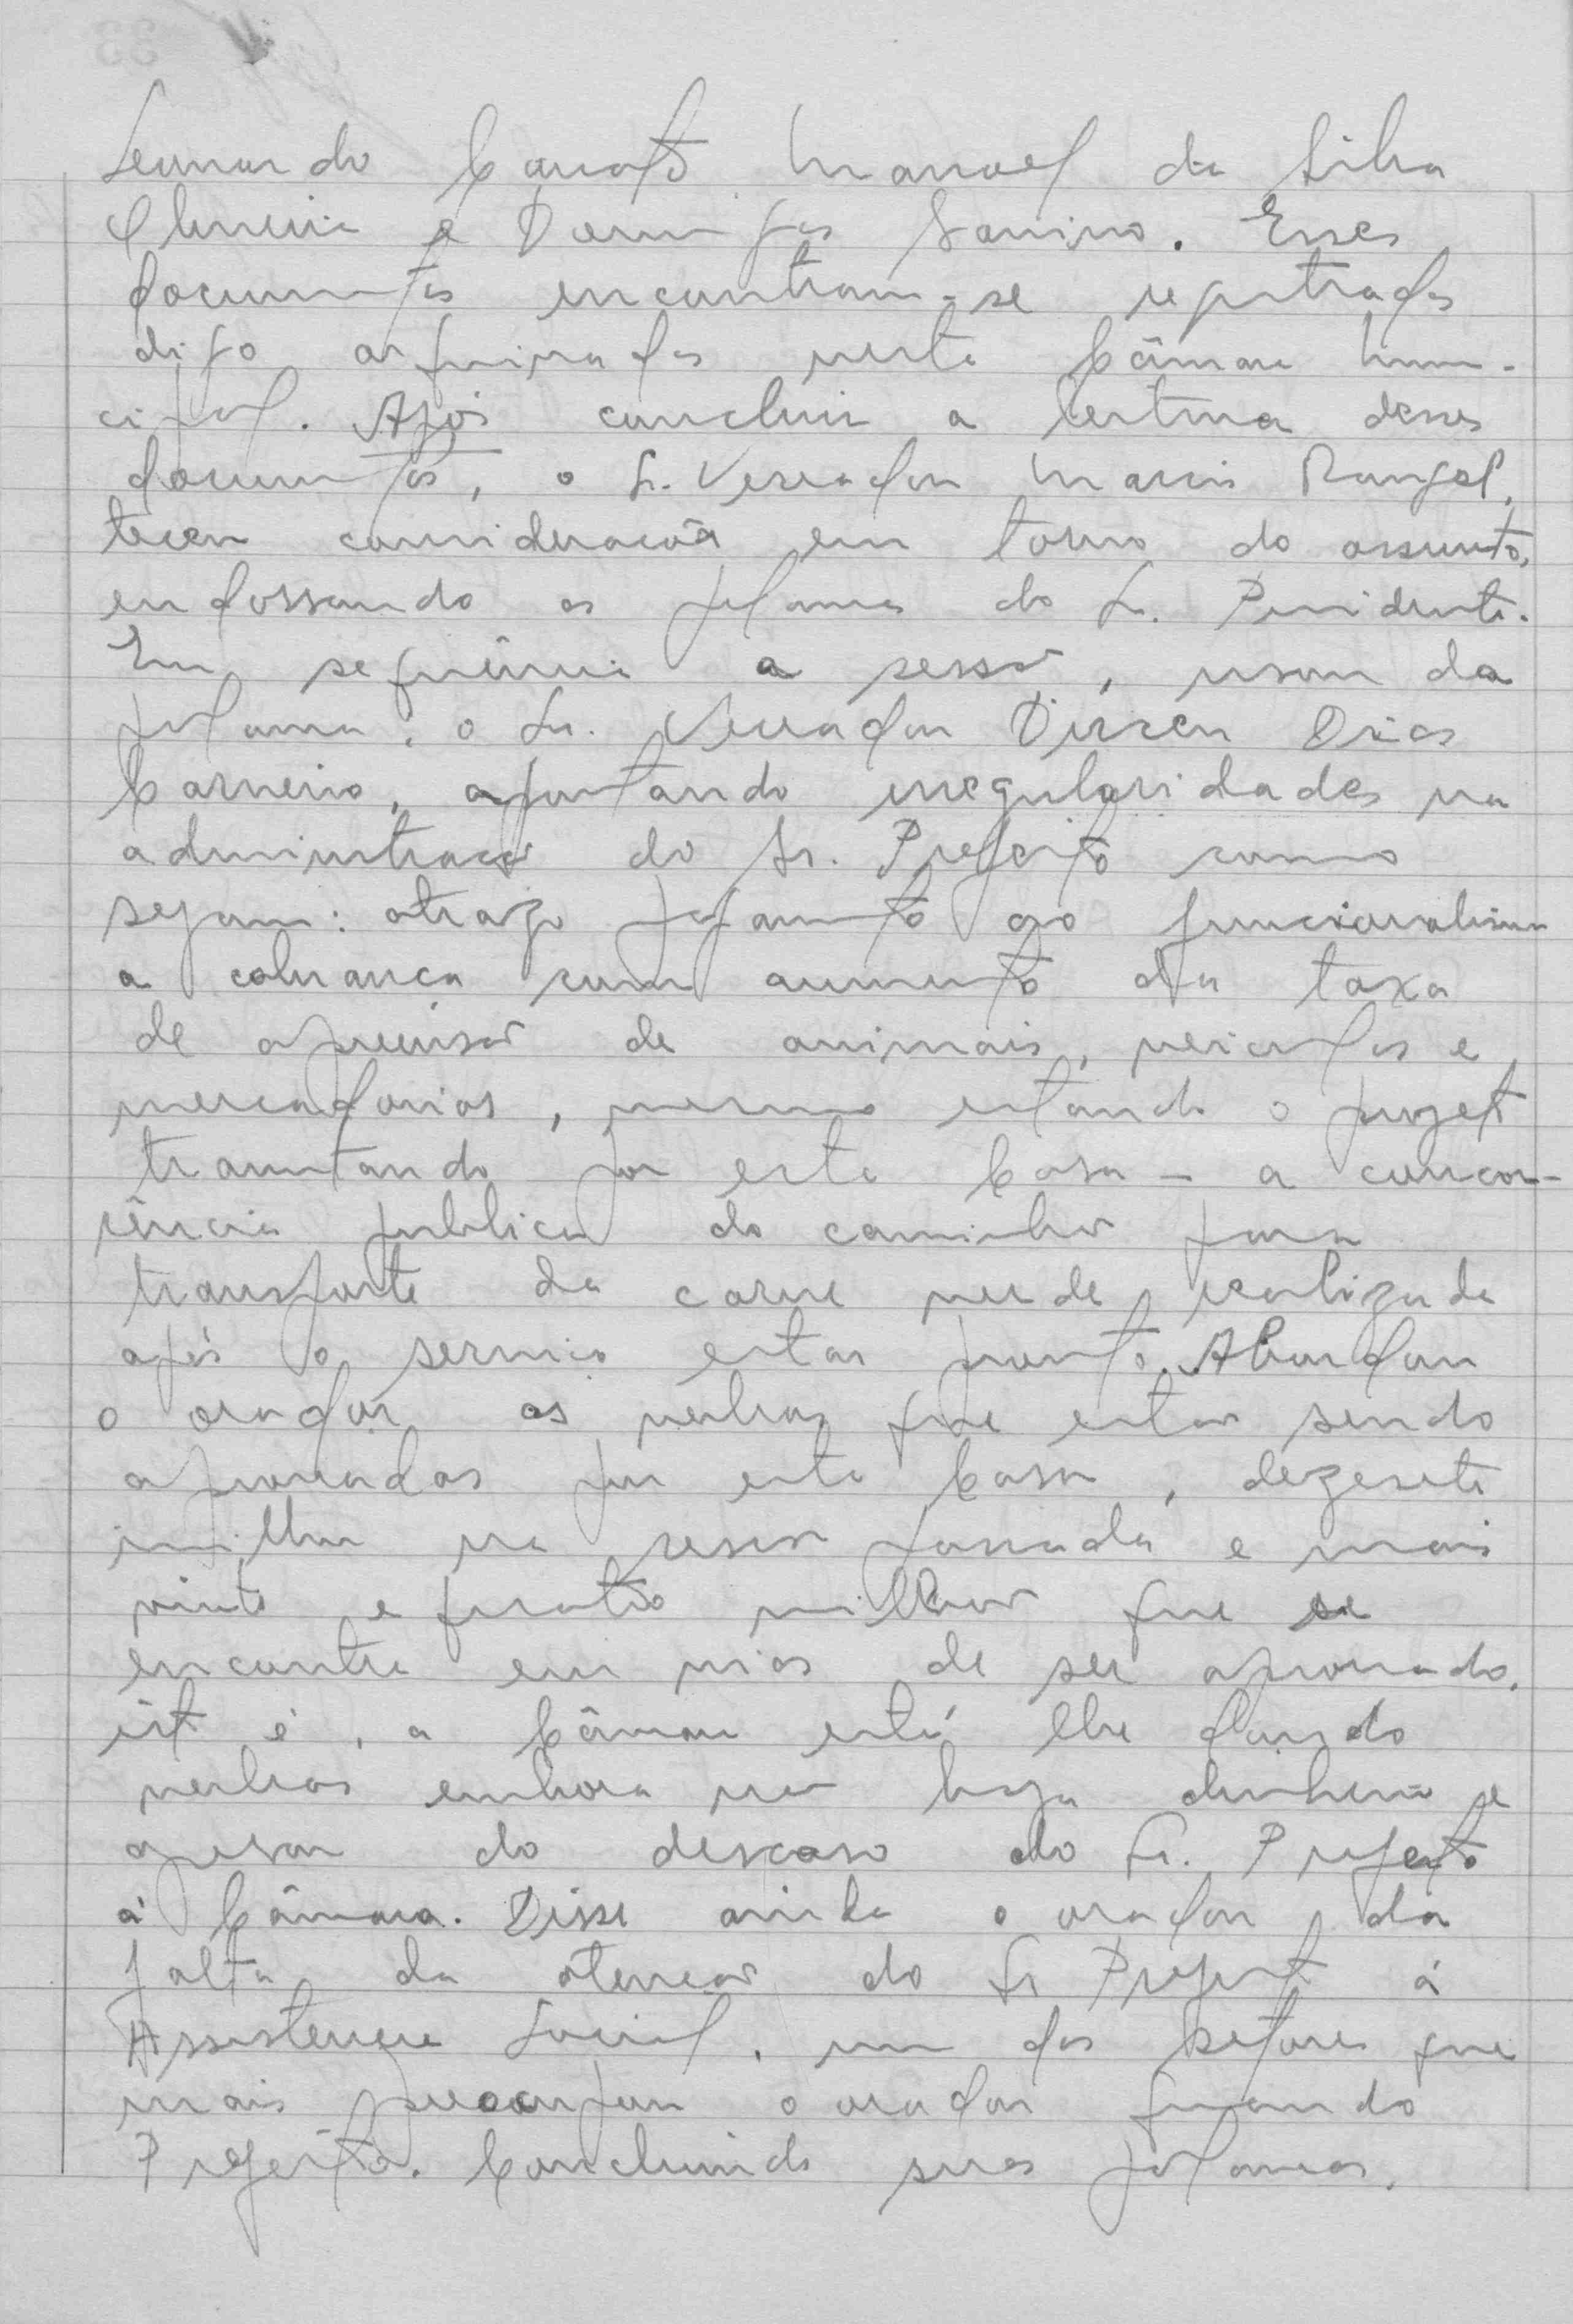 Leonardo Carlota Manoel da Silva
Oliveira e Domingos Savino. Esses
documentos encontram-se registrados
digo arquivados nesta Câmara Muni-
cipal. Após concluir a leitura desses
documentos, o Sr. Vereador Marcis Rangel,
teceu considerações em torno do assunto,
endossando as palavras do Sr. Presidente.
Em sequência a sessão, usou da
palavra, o Sr. Vereador Dirceu Dias
Carneiro, apontando irregularidades na
administração do Sr. Prefeito como
sejam: atrazo pagamento ao funcionalismo
a cobrança com aumento da taxa
de apreensão de animais, veiculos e
mercadorias, mesmo estando o projeto
tramitando por esta Casa - a concor-
rência publica do caminhão para
transporte da carne verde, realizada
após o serviço estar pronto. Abordou
o orador as verbas que estão sendo
aprovadas por esta Casa, dezesete
milhões na sessão passada e mais
vinte e quatro milhões que se
encontra em vias de ser aprovado.
isto é, a Câmara está lhe dando
verbas embora não haja dinheiro e
apesar do descaso do Sr. Prefeito
á Câmara. Disse ainda o orador, da
falta da atenção do Sr Prefeito á
Assistencia Social, um dos setores que
mais preocupou o orador quando
Prefeito. Concluindo suas palavras,